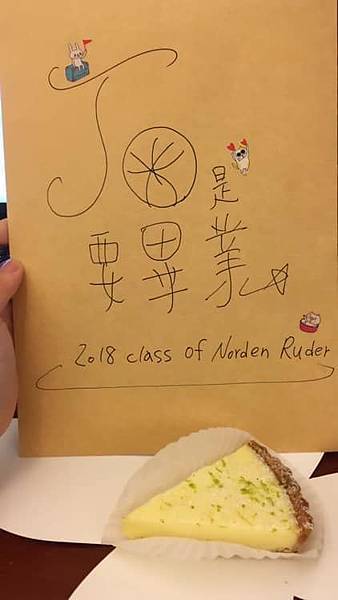 JO是
要畢業
2018 class of Norden Ruder